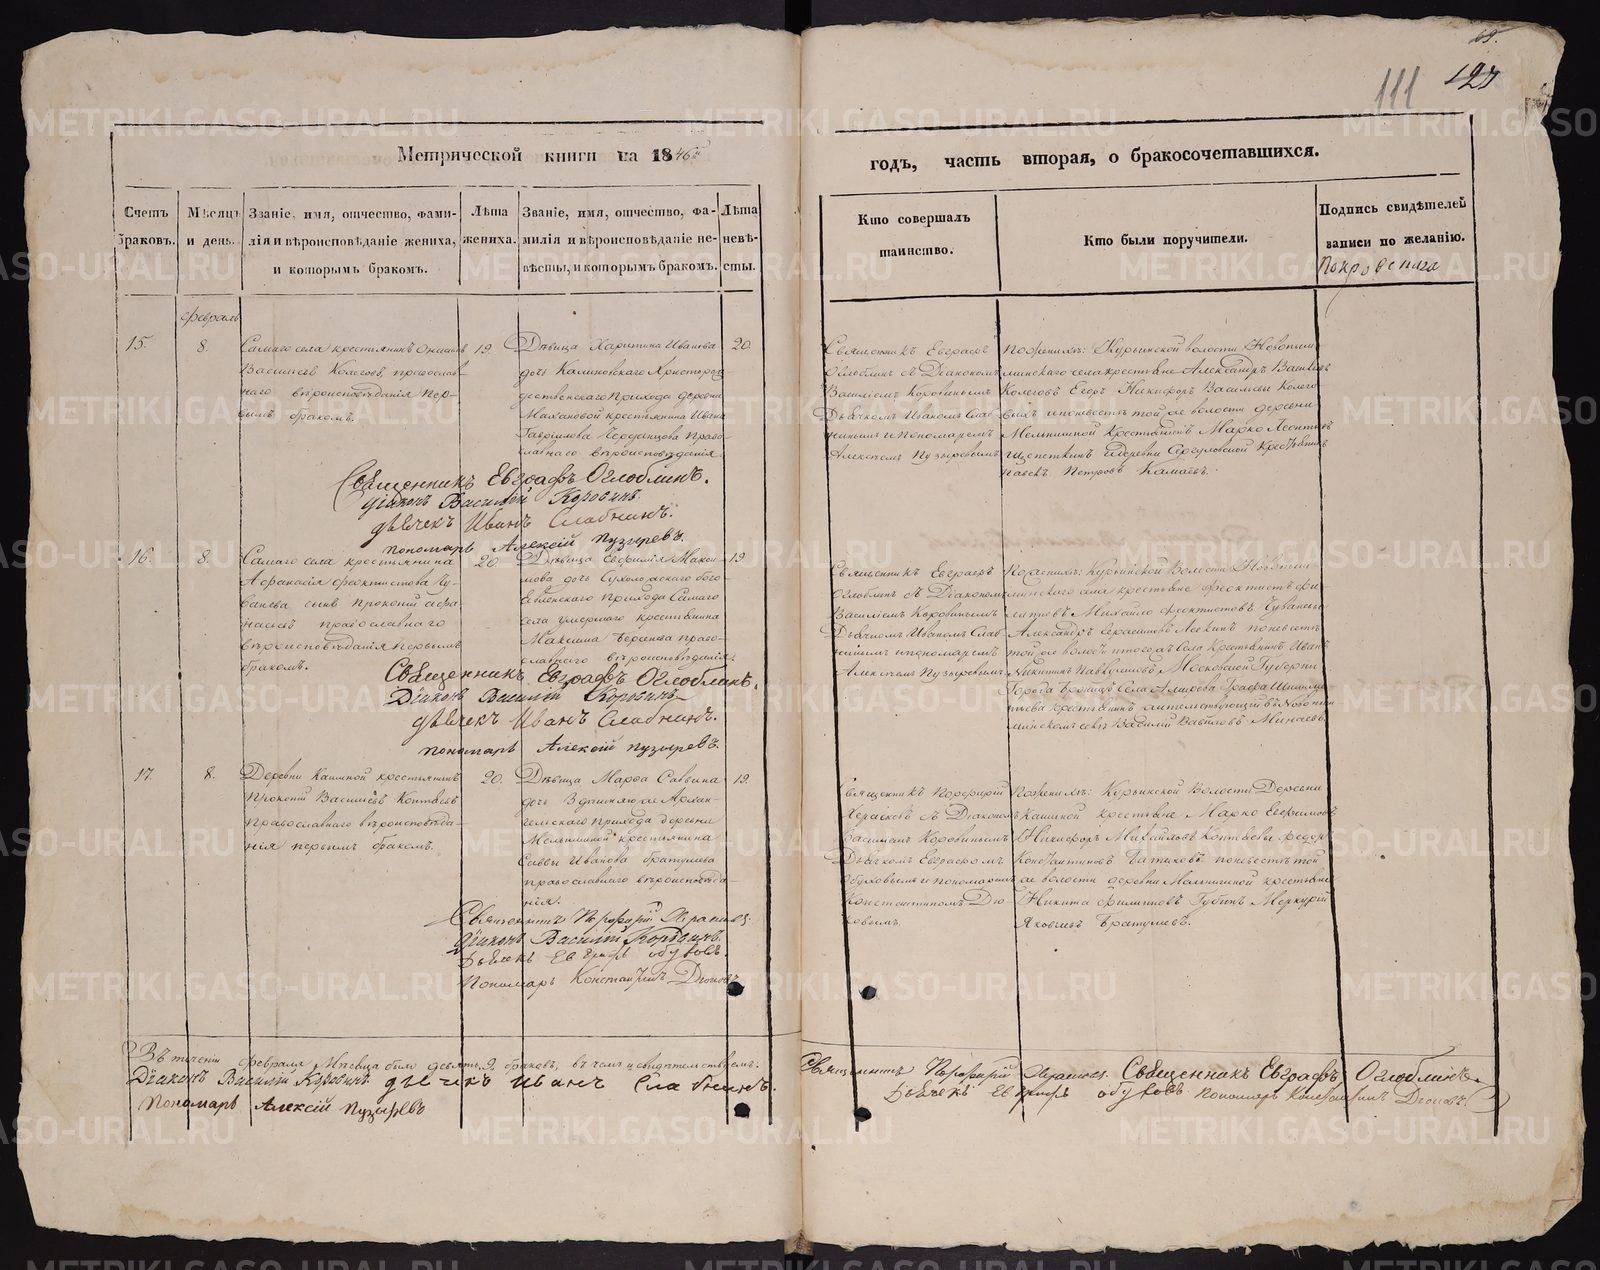 69.
111 127
Метрической книги на 1846й
годъ, часть вторая, о бракосочетавшихся.
Счетъ браковъ.
Мѣсяцъ и день.
Званіе, имя, отчество, фами-
лія и вѣроисповѣданіе жениха,
и которымъ бракомъ.
Лѣта
жениха.
Званіе, имя, отчество, фа-
милія и вѣроисповѣданіе не-
вѣсты, и которымъ бракомъ.
Лѣта
невѣ-
сты.
Кто совершалъ
таинство.
Кто были поручители.
Подпись свидѣтелей
записи по желанію.
Покровскаго
февраль
15. 8.
Самаго села крестьянинъ
Васильевъ православ-
наго вѣроисповѣданія пер-
вымъ бракомъ.
19.
Дѣвица Харитина Иванова
дочь Калиновскаго Христорож-
дественскаго Прихода деревни
крестьянина Ивана
Гаврилова Черданцова Право-
славнаго вѣроисповѣданія
20.
Священникъ Евграфъ
Оглоблинъ съ Діакономъ
Василіемъ Коровинымъ
Дьячкомъ Иваномъ Слаб-
нинымъ и пономаремъ
Алексѣемъ Пузыревымъ
По женихѣ: Курьинской волости Новопыш-
минскаго села крестьяне Александръ
Егоръ Никифоръ Васильевы
и по невѣстѣ той же волости деревни
Мельнишной Крестьянинъ Марко Леонтьевъ
Щепеткинъ и деревни Сергуловской
Павелъ Петровъ Камаевъ.
Священникъ Евграфъ Оглоблинъ.
Діаконъ Василій Коровинъ
дьячекъ Иванъ Слабнинъ.
пономарь Алексій Пузыревъ.
16. 8.
Самаго села крестьянина
Афанасія Феоктистова Чу-
ванева сынъ Прокопій Афа-
насьевъ православнаго
вѣроисповѣданія первымъ
бракомъ.
20
Дѣвица Евфимія Макси-
мова дочь Сухоложскаго Бого-
явленскаго Прихода Самаго
села умершаго крестьянина
Максима Берсенева право-
славнаго вѣроисповѣданія.
19.
Священникъ Евграфъ
Оглоблинъ съ Діакономъ
Василіемъ Коровинымъ
Дьячкомъ Иваномъ Слаб-
нинымъ и пономаремъ
Алексѣемъ Пузыревымъ
По женихѣ: Курьинской Волости Новопыш-
минскаго села крестьяне Феоктистъ
Михайло Феоктистовъ Чуваневъ
Александръ по невѣстѣ
той же волости того жъ Села Крестьянинъ Иванъ
Никитинъ Московской Губерніи
Города Бронницъ Села Графа
крестьянинъ жительствующій въ Новопыш-
минскомъ селѣ Василій Минаевъ.
Священникъ Евграфъ Оглоблинъ.
Діаконъ Василій Коровинъ
дьячекъ Иванъ Слабнинъ.
пономарь Алексій Пузыревъ.
17. 8.
Деревни Кашиной крестьянинъ
Прокопій Васильевъ Коптяевъ
Православнаго вѣроисповѣда-
нія первымъ бракомъ.
20.
Дѣвица Марѳа Саввина
дочь здѣшняго же Архан-
гельскаго прихода деревни
Мельнишной крестьянина
Саввы Иванова Братушева
православнаго вѣроисповѣда-
нія.
19.
Священникъ Порфирій
съ Діакономъ
Василіемъ Коровинымъ
Дьячкомъ Евграфомъ
Обуховымъ и пономаремъ
Константиномъ Дю-
ковымъ
По женихѣ: Курьинской Волости Деревни
Кашиной крестьяне Марко Евфимовъ
Никифоръ Михайловъ Коптяевы Федоръ
Константиновъ по невѣстѣ той
же волости деревни Мельнишной крестьяне
Никита Филиповъ Губинъ Меркурій
Яковлевъ Братушевъ.
Священникъ Порфирій
Діаконъ Василій Коровинъ.
Дьячекъ Евграфъ Обуховъ.
Пономарь Константинъ
Въ теченіи февраля Мѣсяца было девять 9. браковъ, въ чемъ и свидѣтельствуемъ.
Священникъ Порфирій Священникъ Евграфъ Оглоблинъ
Діаконъ Василій Коровинъ дьячекъ Иванъ Слабнинъ.
Дьячекъ Евграфъ Обуховъ пономарь Константинъ
Пономарь Алексій Пузыревъ
METRIKI.GASO-URAL.RU